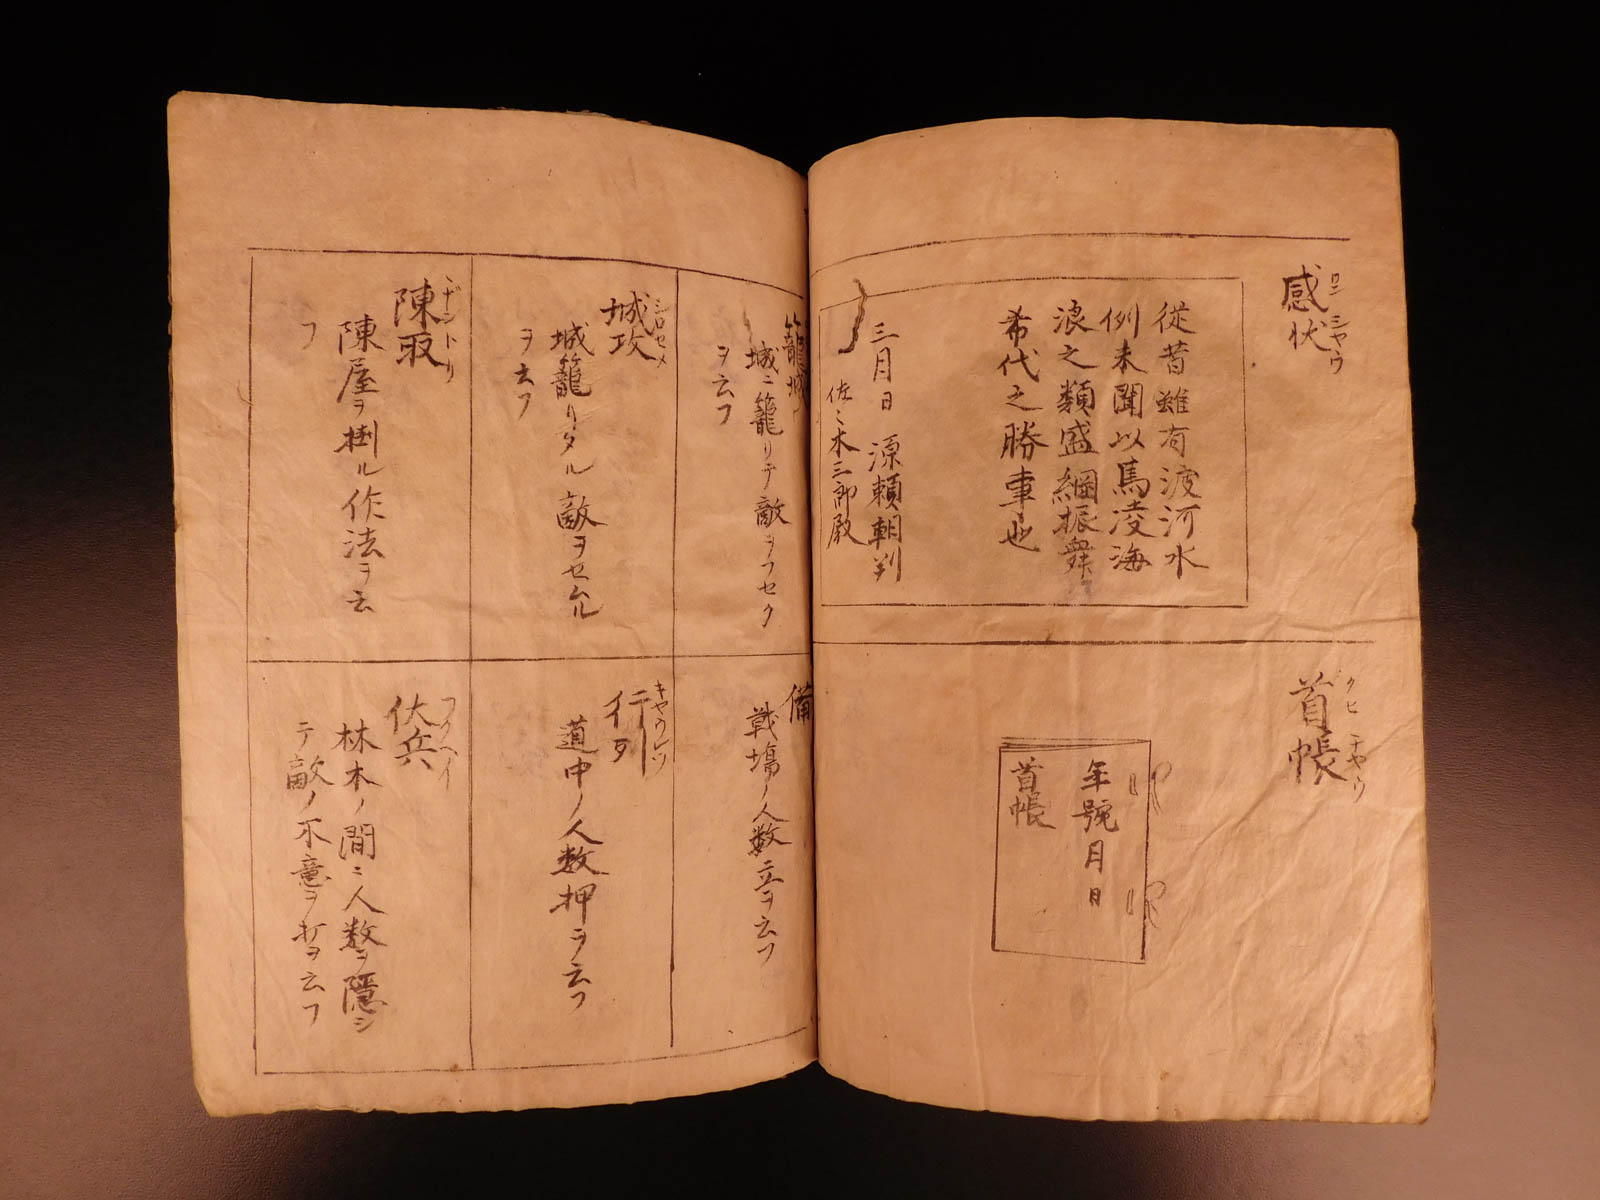 感状
従昔雖有渡河水
例未聞以馬凌海
浪之類盛綱振舞
希代之勝事也
三月日 源頼朝判
佐々木三郎殿
首帳
クヒチヤウ
年號月日
首帳
籠城
城ニ籠リテ敵ヲフセク
ヲ云フ
備
戦場ノ人数立ヲ云フ
城攻
シロセメ
城籠リタル敵ヲセムル
ヲ云フ
行列
キヤウレツ
道中ノ人数押ヲ云フ
陳取
ヂントリ
陳屋ヲ掛ル作法ヲ云
フ
伏兵
フクヘイ
林木ノ間ニ人数ヲ隠シ
テ敵ノ不意ヲ打ヲ云フ